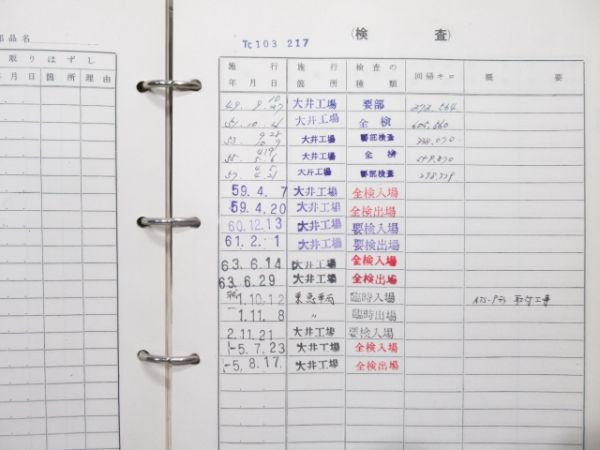 部品名
取りはずし
年月日 箇所 理由
(検 査)
Tc103 217
施行年月日 施行箇所 検査の種類 回帰キロ 概要
49. 9. 10 27 大井工場 要部
51. 10. 21 大井工場 全検
53. 9 28 10 9 大井工場 要部検査
55. 大井工場 全検
57. 大井工場 要部検査
59.4. 7 大井工場 全検入場
59.4.20 大井工場 全検出場
60.12.13 大井工場 要検入場
61.2. 1 大井工場 要検出場
63.6.14 大井工場 全検入場
63.6.29 大井工場 全検出場
1.10.12 東急車両 臨時入場 ATS-P形 取付工事
1.11. 8 〃 臨時出場
2.11.21 大井工場 要検入場
-5.7.23 大井工場 全検入場
-5.8.17 大井工場 全検出場